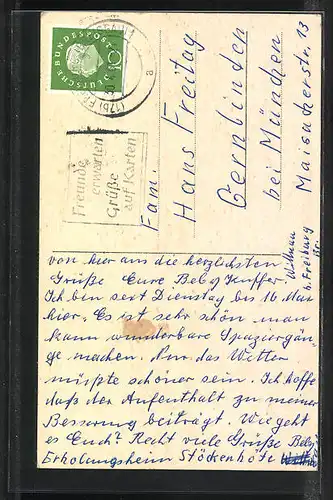 DEUTSCHE BUNDESPOST
10
(17b) FR
a
Freunde
erwarten
Grüße
auf Karten
Fam.
Hans Freitag
Gernlinden
bei München
Maisacherstr. 13
Wittnau
b. Freiburg
Br.
von hier aus die herzlichsten
Grüße Eure
Ich bin seit Dienstag bis 16 Mai
hier. Es ist sehr schön man
kann wunderbare Spaziergän-
ge machen. Nur das Wetter
müßte schöner sein. Ich hoffe
daß der Aufenthalt zu meiner
Besserung beiträgt. Wie geht
es Euch? Recht viele Grüße
Erholungsheim Stöckenhöfe